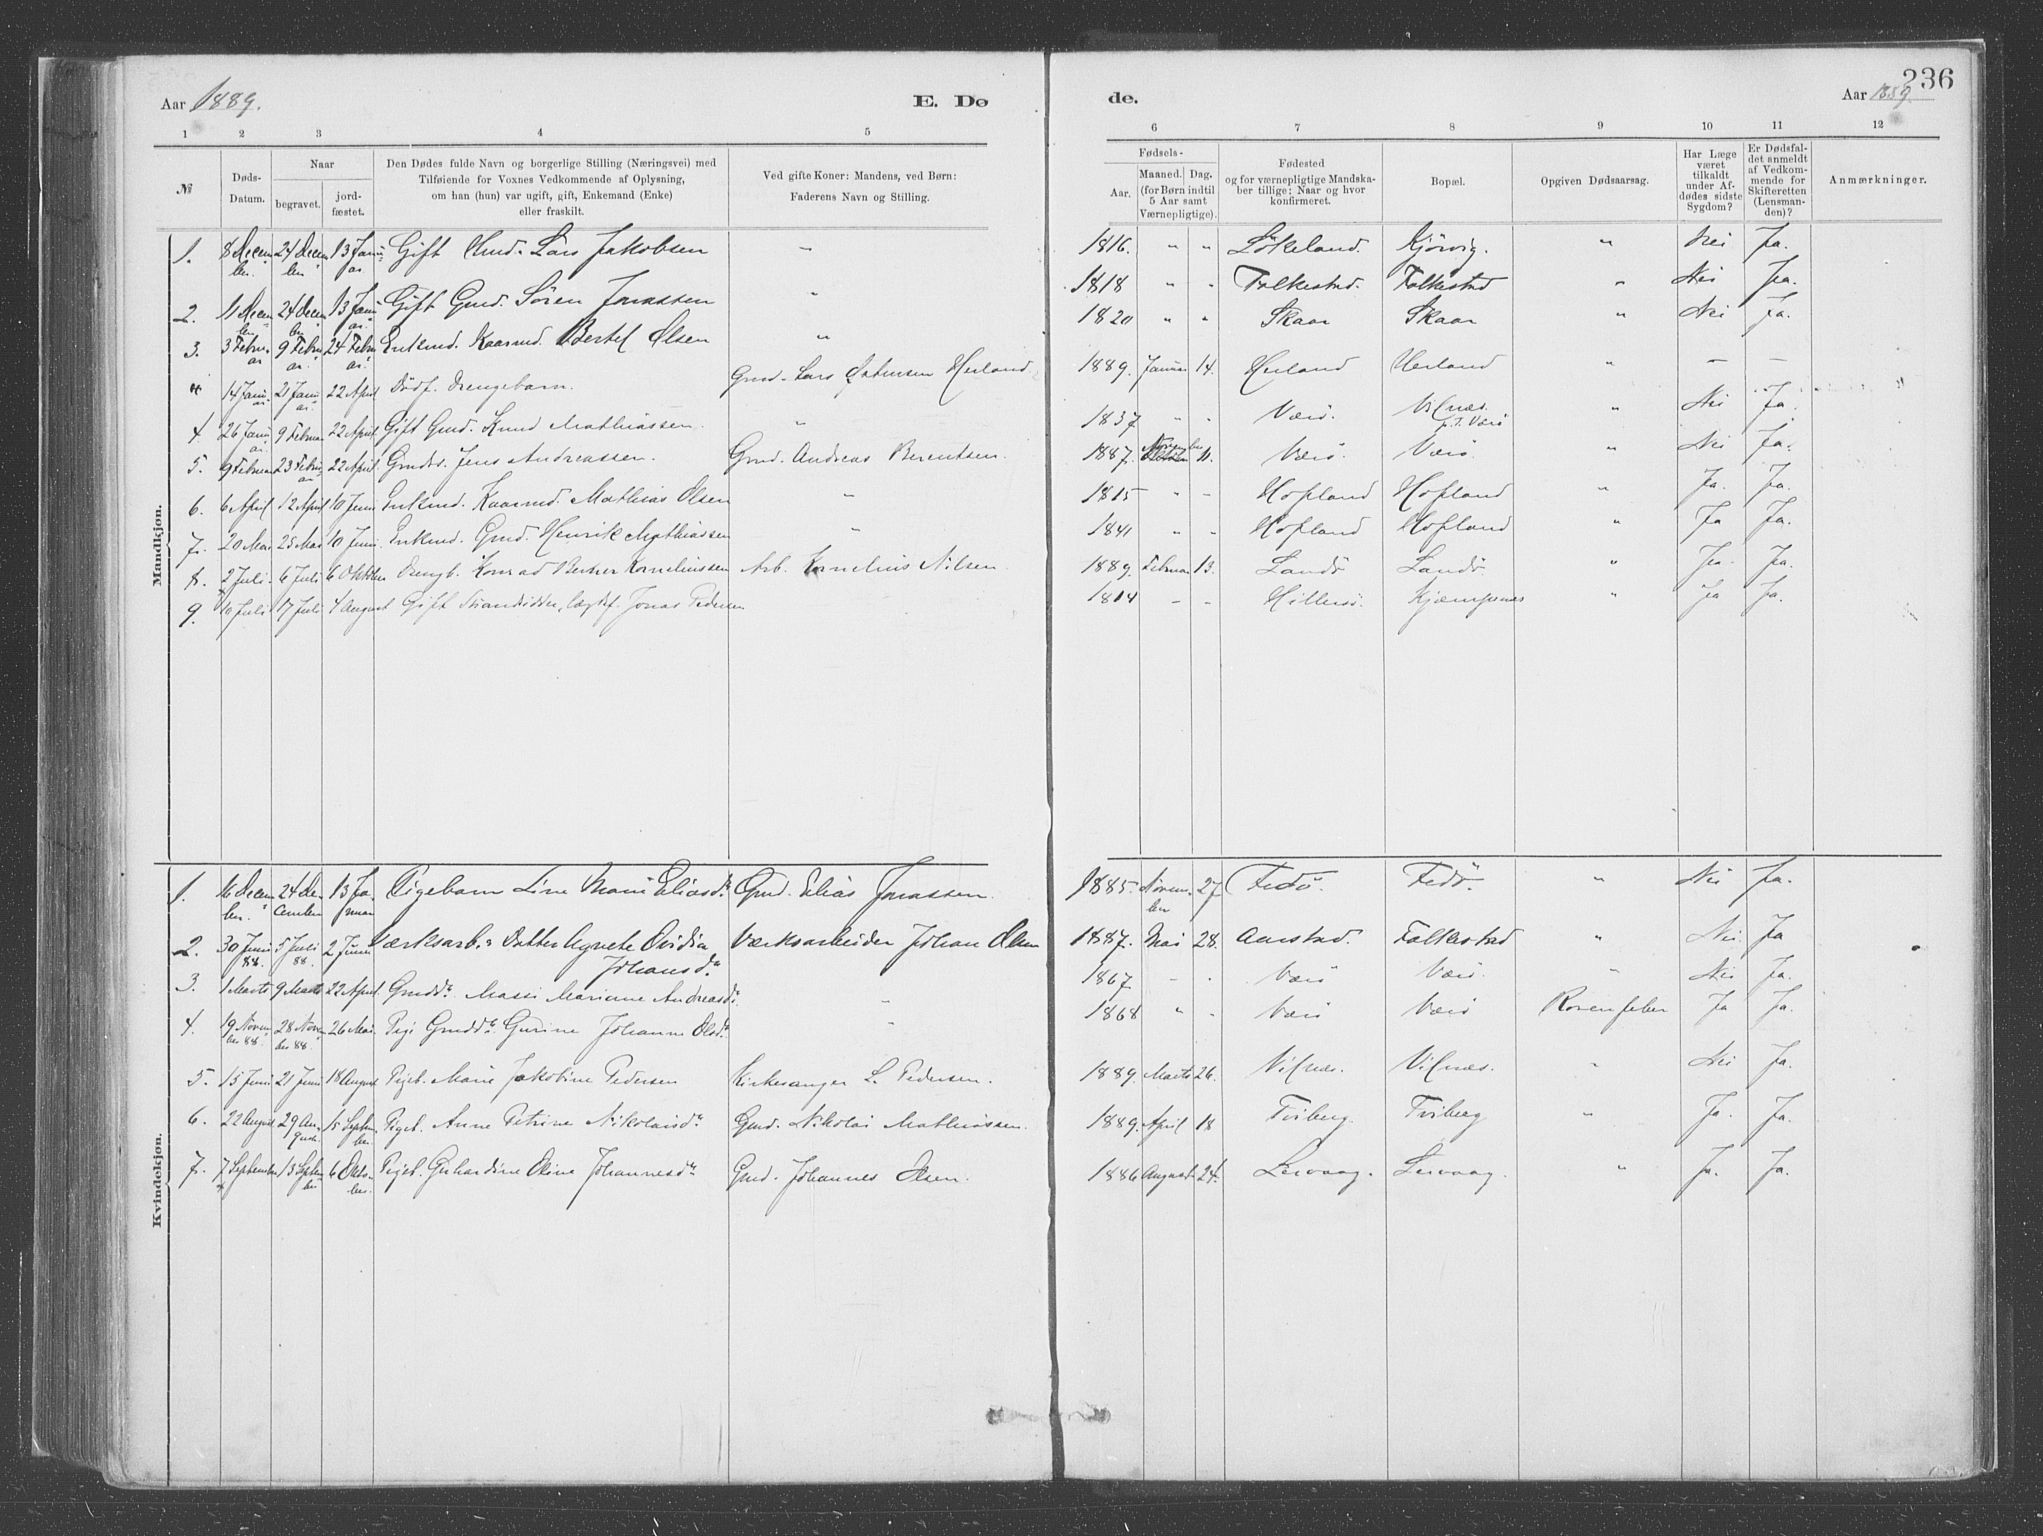 236
Aar 1889.
E. Dø
de.
Aar 1889
1 2 3 4 5
6 7 8 9 10 11 12
№
Døds-
Datum.
Naar
begravet.
jord-
fæstet.
Den Dødes fulde Navn og borgerlige Stilling (Næringsvei) med
Tilføiende for Voxnes Vedkommende af Oplysning,
om han (hun) var ugift, gift, Enkemand (Enke)
eller fraskilt.
Ved gifte Koner: Mandens, ved Børn:
Faderens Navn og Stilling.
Fødsels-
Aar.
Maaned. Dag.
(for Børn indtil
5 Aar samt
Værnepligtige).
Fødested
og for værnepligtige Mandska-
ber tillige: Naar og hvor
konfirmeret.
Bopæl.
Opgiven Dødsaarsag.
Har Læge
været
tilkaldt
under Af-
dødes sidste
Sygdom?
Er Dødsfal-
det anmeldt
af Vedkom-
mende for
Skifteretten
(Lensman-
den)?
Anmærkninger.
Mandkjøn.
1. 8 Decem-ber. 24 Decem-ber 13 Janu-ar Gift Lars Jakobsen " 1816. " " Lökeland. Kjørvig. " Nei Ja.
2. 11 Decem-ber 24 Decem-ber 13 Janu-ar. Gift Gmd. Sören Jonassen " 1818 " " Folkestad. Folkestad " Nei Ja.
3. 3 Febru-ar 9 Febru-ar. 24 Febru-ar. Enkmd. Kaarmd. Bertel Olsen " 1820 " " Skaar Skaar " Nei Ja.
" 14 Janu-ar 21 Janu-ar. 22 April Dødf. Drengebarn. Gmd. Lars Herland 1889. Januar 14. Herland Herland " — —
4. 26 Janu-ar. 9 Februar 22 April Gift Gmd. Knud Mathiassen. " 1837 " " Værö. Vilnæs. " Nei Ja.
5. 9 Februar 23 Febru-ar 22 April Jens Andreassen. Gmd. Andreas Berentsen. 1887. November 11. Værö Værö. " Nei Ja.
6. 6 April 12 April 10 Juni Enkmd. Kaarmd. Mathias Olsen " 1815 " - Hofland Hofland " Ja. Ja.
7. 20 Mai 25 Mai 10 Juni. Enkmd. Gmd. Henrik Mathiassen " 1841 - - Hofland Hofland " Ja Ja.
8. 2 Juli. 6 Juli 6 Oktober Drengb. Konrad Berner Korneliussen Arb. Kornelius Nilsen. 1889. Februar 13. Landö Landö " Ja. Ja.
9. 10 Juli 17 Juli 4 August Gift Strandsidder, lægdsf. Jonas Pedersen 1814 - - Hillersö. Kjempenes " Ja Ja.
Kvindekjøn.
1. 16 Decem-ber. 24 De-cember 13 Ja-nuar Pigebarn Line Marie Eliasdr. Gmd. Elias Jonassen. 1885. Novem-ber 27 Fedö. Fedö. " Nei Ja.
2. 30 Juni 88. 5 Juli 88. 2 Juni Værksarb.s Datter Agnete Ovidia Værksarbeider Johan Olsen 1887. Mai 28. Aarstad. Folkestad " Nei Ja
Johansdr.
3. 1 Marts 9 Marts 22 April. Gmdd. Massi Mariane Andreasdr. " 1867 - - Værö Værö. " Nei Ja.
4. 19 Novem-ber 88. 28 Novem-ber 88 26 Mai. Pige Gmdd. Gurine Johanne Olsdr. " 1868 " - Værö Værö Rosenfeber Ja Ja.
5. 15 Juni 21 Juni 18 August Pigeb. Marie Jakobine Pedersen Kirkesanger L. Pedersen. 1889. Marts 26. Vilnæs. Vilnæs. - Nei Ja.
6. 22 August 29 Au-gust 15 Septem-ber. Pigeb. Anne Petrine Nikolaisdr. Gmd. Nikolai Mathiassen. 1889. April 18 Tviberg. Tviberg " Ja. Ja.
7. 7 September 13 Septem-ber 6 Okto-ber. Pigeb. Gerhardine Oline Johannesdr. Gmd. Johannes Olsen. 1886 August 24. Lervaag. Lervaag. " Ja. Ja.